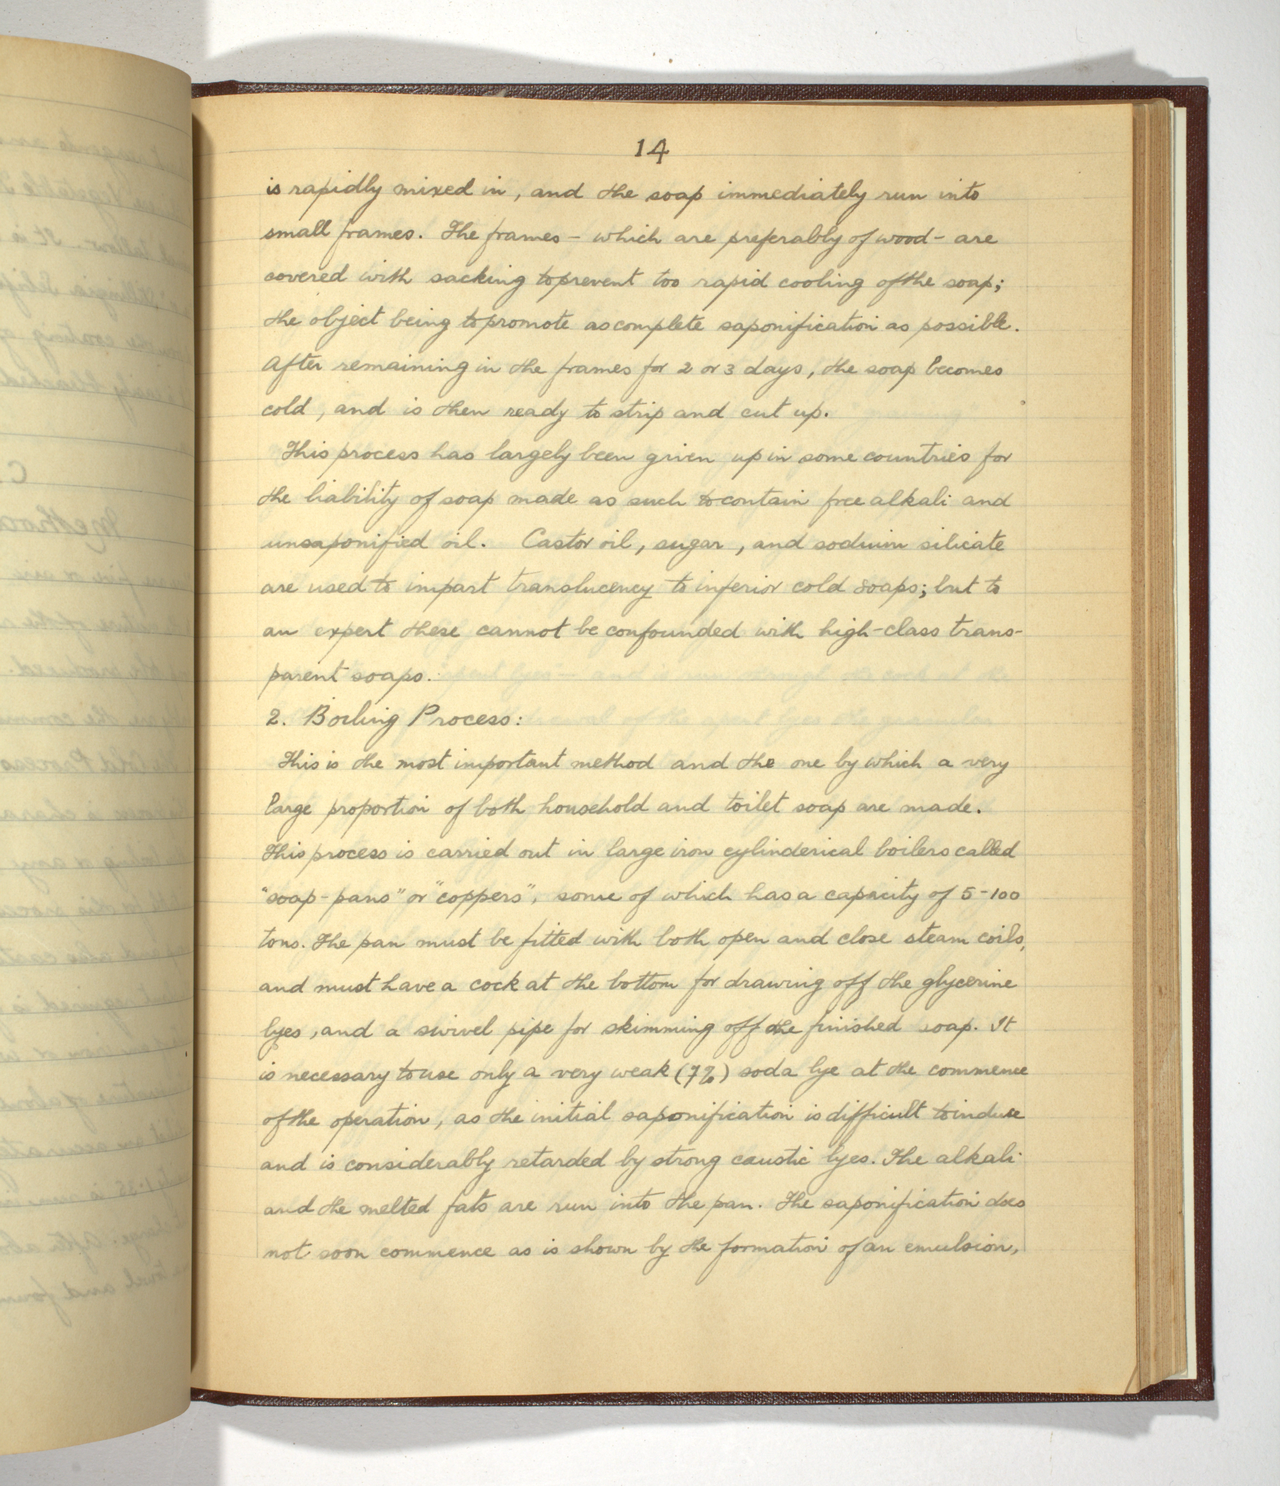 14
is rapidly mixed in, and the soap immediately run into
small frames. The frames - which are preferably of wood - are
covered with sacking to prevent too rapid cooling of the soap;
the object being to promote as complete saponification as possible.
After remaining in the frames for 2 or 3 days, the soap becomes
cold, and is then ready to strip and cut up.
This process has largely been given up in some countries for
the liability of soap made as such to contain free alkali and
unsaponified oil. Castor oil, sugar, and sodium silicate
are used to impart translucency to inferior cold soaps; but to
an expert these cannot be confounded with high-class trans-
parent soaps.
2. Boiling Process:
This is the most important method and the one by which a very
large proportion of both household and toilet soap are made.
This process is carried out in large iron cylinderical boilers called
"soap-pans" or "coppers", some of which has a capacity of 5-100
tons. The pan must be fitted with both open and close steam coils,
and must have a cock at the bottom for drawing off the glycerine
lyes, and a swivel pipe for skimming off the finished soap. It
is necessary to use only a very weak (7%) soda lye at the commence
of the operation, as the initial saponification is difficult to induce
and is considerably retarded by strong caustic lyes. The alkali
and the melted fats are run into the pan. The saponification does
not soon commence as is shown by the formation of an emulsion,